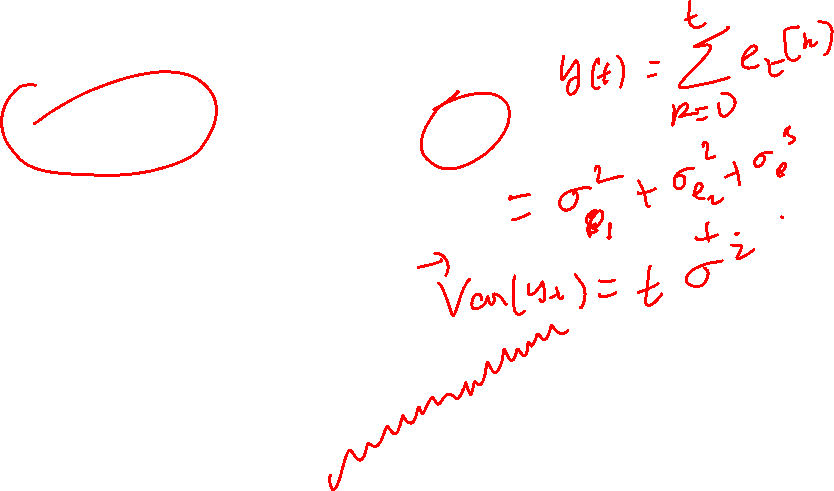 y(t) = \sum_{k=0}^{t} e_t[k]
= σ_{e_1}^2 + σ_{e_2}^2 + σ_e^3
+ ..
→ Var(y_t) = t σ^2